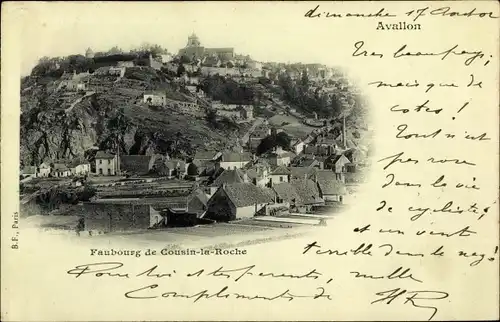 dimanche 17
Avallon
Tres beau pays
mais que de
cotes !
Tout n'est
pas rose
dans la vie
de cycliste,
et un vent
terrible dans le nez !
B. F., Paris
Faubourg de Cousin-la-Roche
Pour toi et tes parents, mille
Compliments de